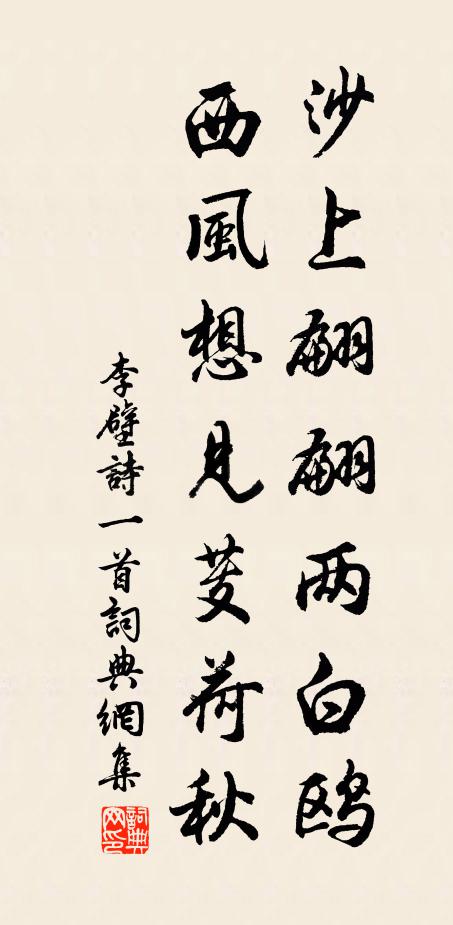 沙上翩翩两白鸥
西風想見芰荷秋
李壁詩一首詞典網集
詞典网印